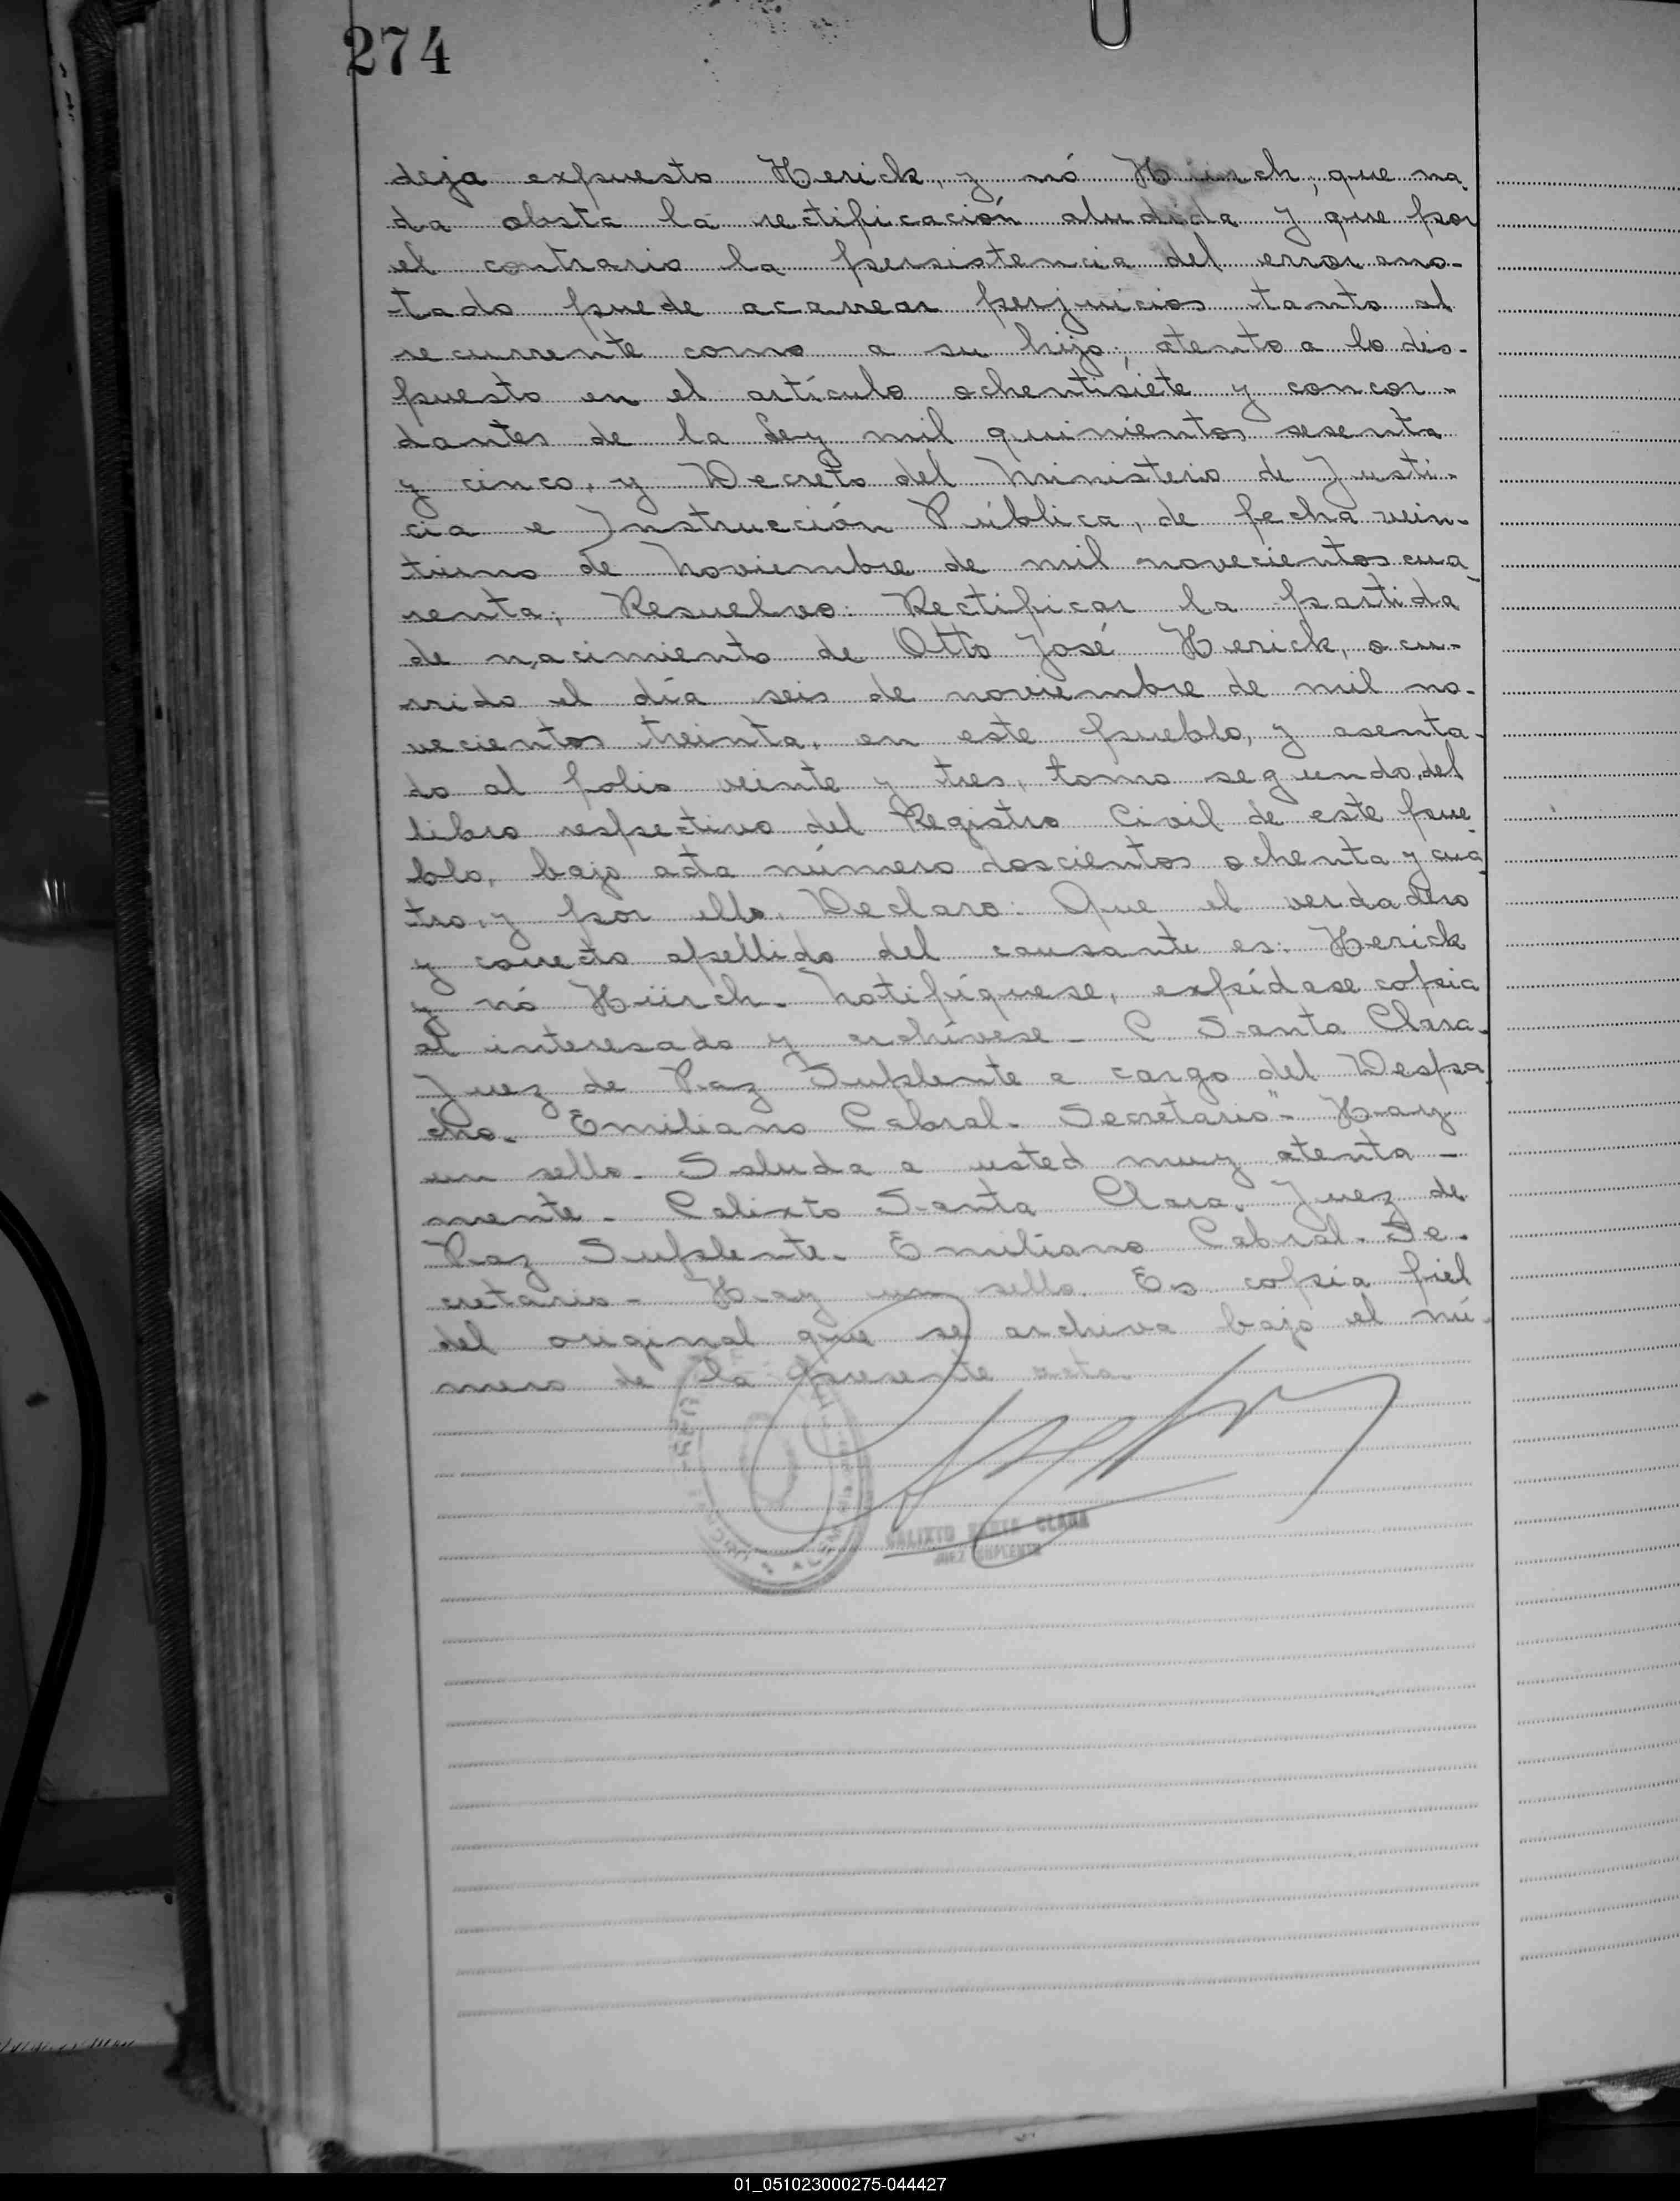 274
deja expuesto Herick, y nó Hiirch, que na-
da obsta la rectificación aludida y que por
el contrario la persistencia del error ano-
tado puede acarrear perjuicios tanto al
recurrente como a su hijo; atento a lo dis-
puesto en el artículo ochentisiete y concor-
dantes de la Ley mil quinientos sesenta
y cinco, y Decreto del Ministerio de Justi-
cia e Instrucción Pública, de fecha vein-
tiuno de Noviembre de mil novecientos cua-
renta; Resuelvo: Rectificar la partida
de nacimiento de Otto José Herick, ocu-
rrido el día seis de noviembre de mil no-
vecientos treinta, en este pueblo, y asenta-
do al folio veinte y tres, tomo segundo, del
libro respectivo del Registro Civil de este pue-
blo, bajo acta número doscientos ochenta y cua-
tro, y por ello. Declaro: Que el verdadero
y correcto apellido del causante es: Herick
y nó Hiirch. Notifíquese, expídase copia
al interesado y archívese - C. Santa Clara.
Juez de Paz Suplente a cargo del Despa-
cho. Emiliano Cabral. Secretario"- Hay
un sello. Saluda a usted muy atenta -
mente. Calixto Santa Clara. Juez de
Paz Suplente. Emiliano Cabral. Se-
cretario - Hay un sello. Es copia fiel
del original que se archiva bajo el nú-
mero de la presente acta.
CALIXTO SANTA CLARA
JUEZ SUPLENTE
01_051023000275-044427